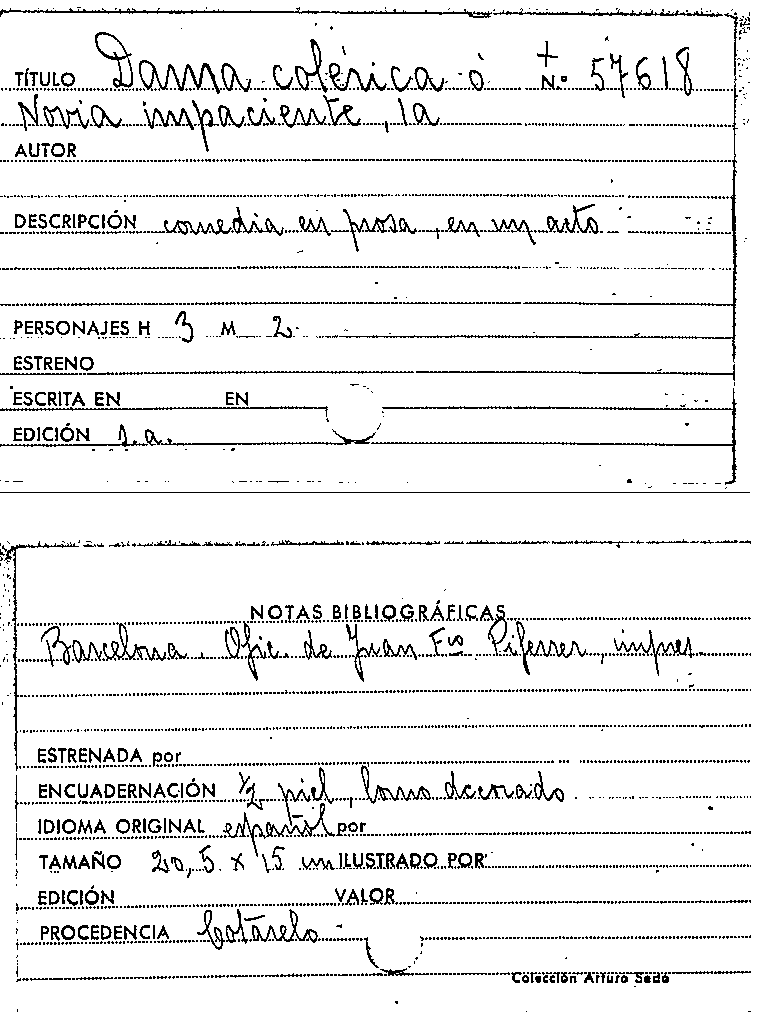 TÍTULO Dama colérica ó + N.º 57618
Novia impaciente, la
AUTOR
DESCRIPCIÓN comedia en prosa, en un acto
PERSONAJES H 3 M 2
ESTRENO
ESCRITA EN EN
EDICIÓN s.a.
NOTAS BIBLIOGRÁFICAS
Barcelona. Ofic. de Juan Fco Piferrer, impres.
ESTRENADA por
ENCUADERNACIÓN ½ piel, lomo decorado
IDIOMA ORIGINAL español por
TAMAÑO 20,5 x 15 cm ILUSTRADO POR
EDICIÓN VALOR
PROCEDENCIA Cotarelo
Colección Arturo Sedó